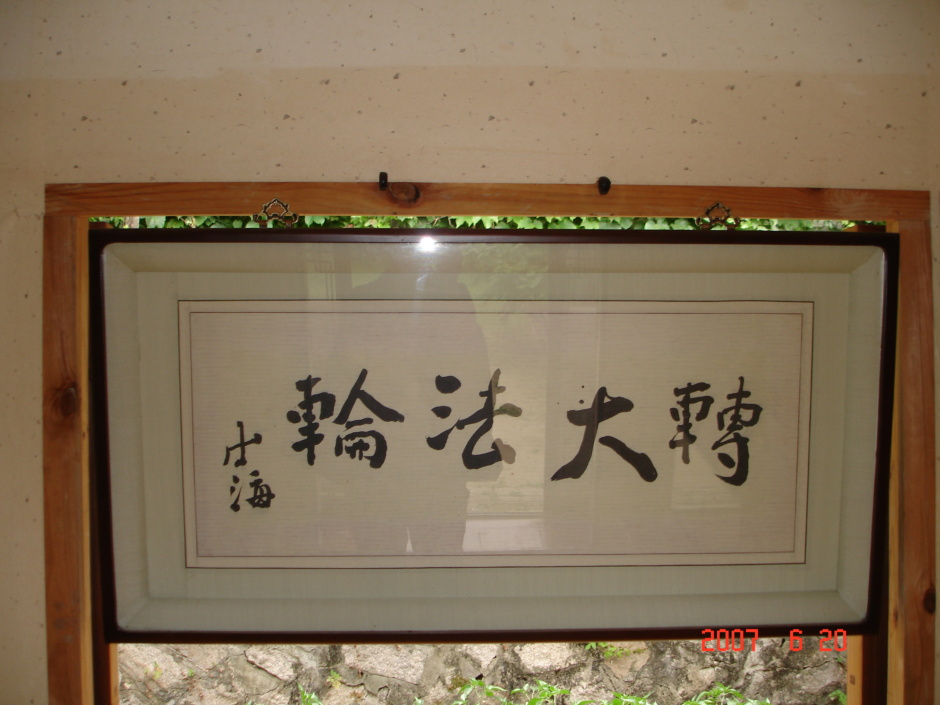 轉大法輪
海
2007 6 20